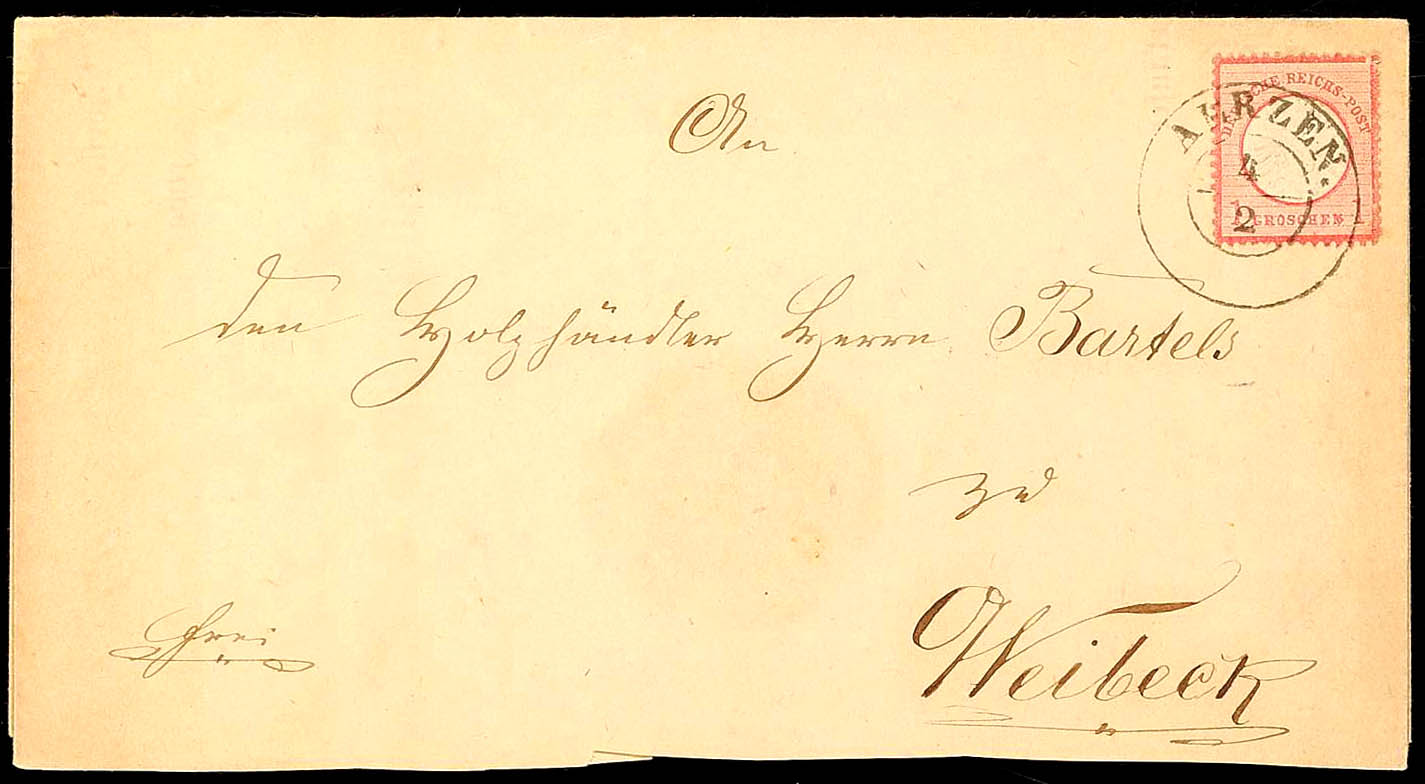 DEUTSCHE REICHS-POST
AERZEN.
4
2
1 GROSCHEN 1
An
den Holzhändler Herrn Bartels
zu
Weibeck
frei